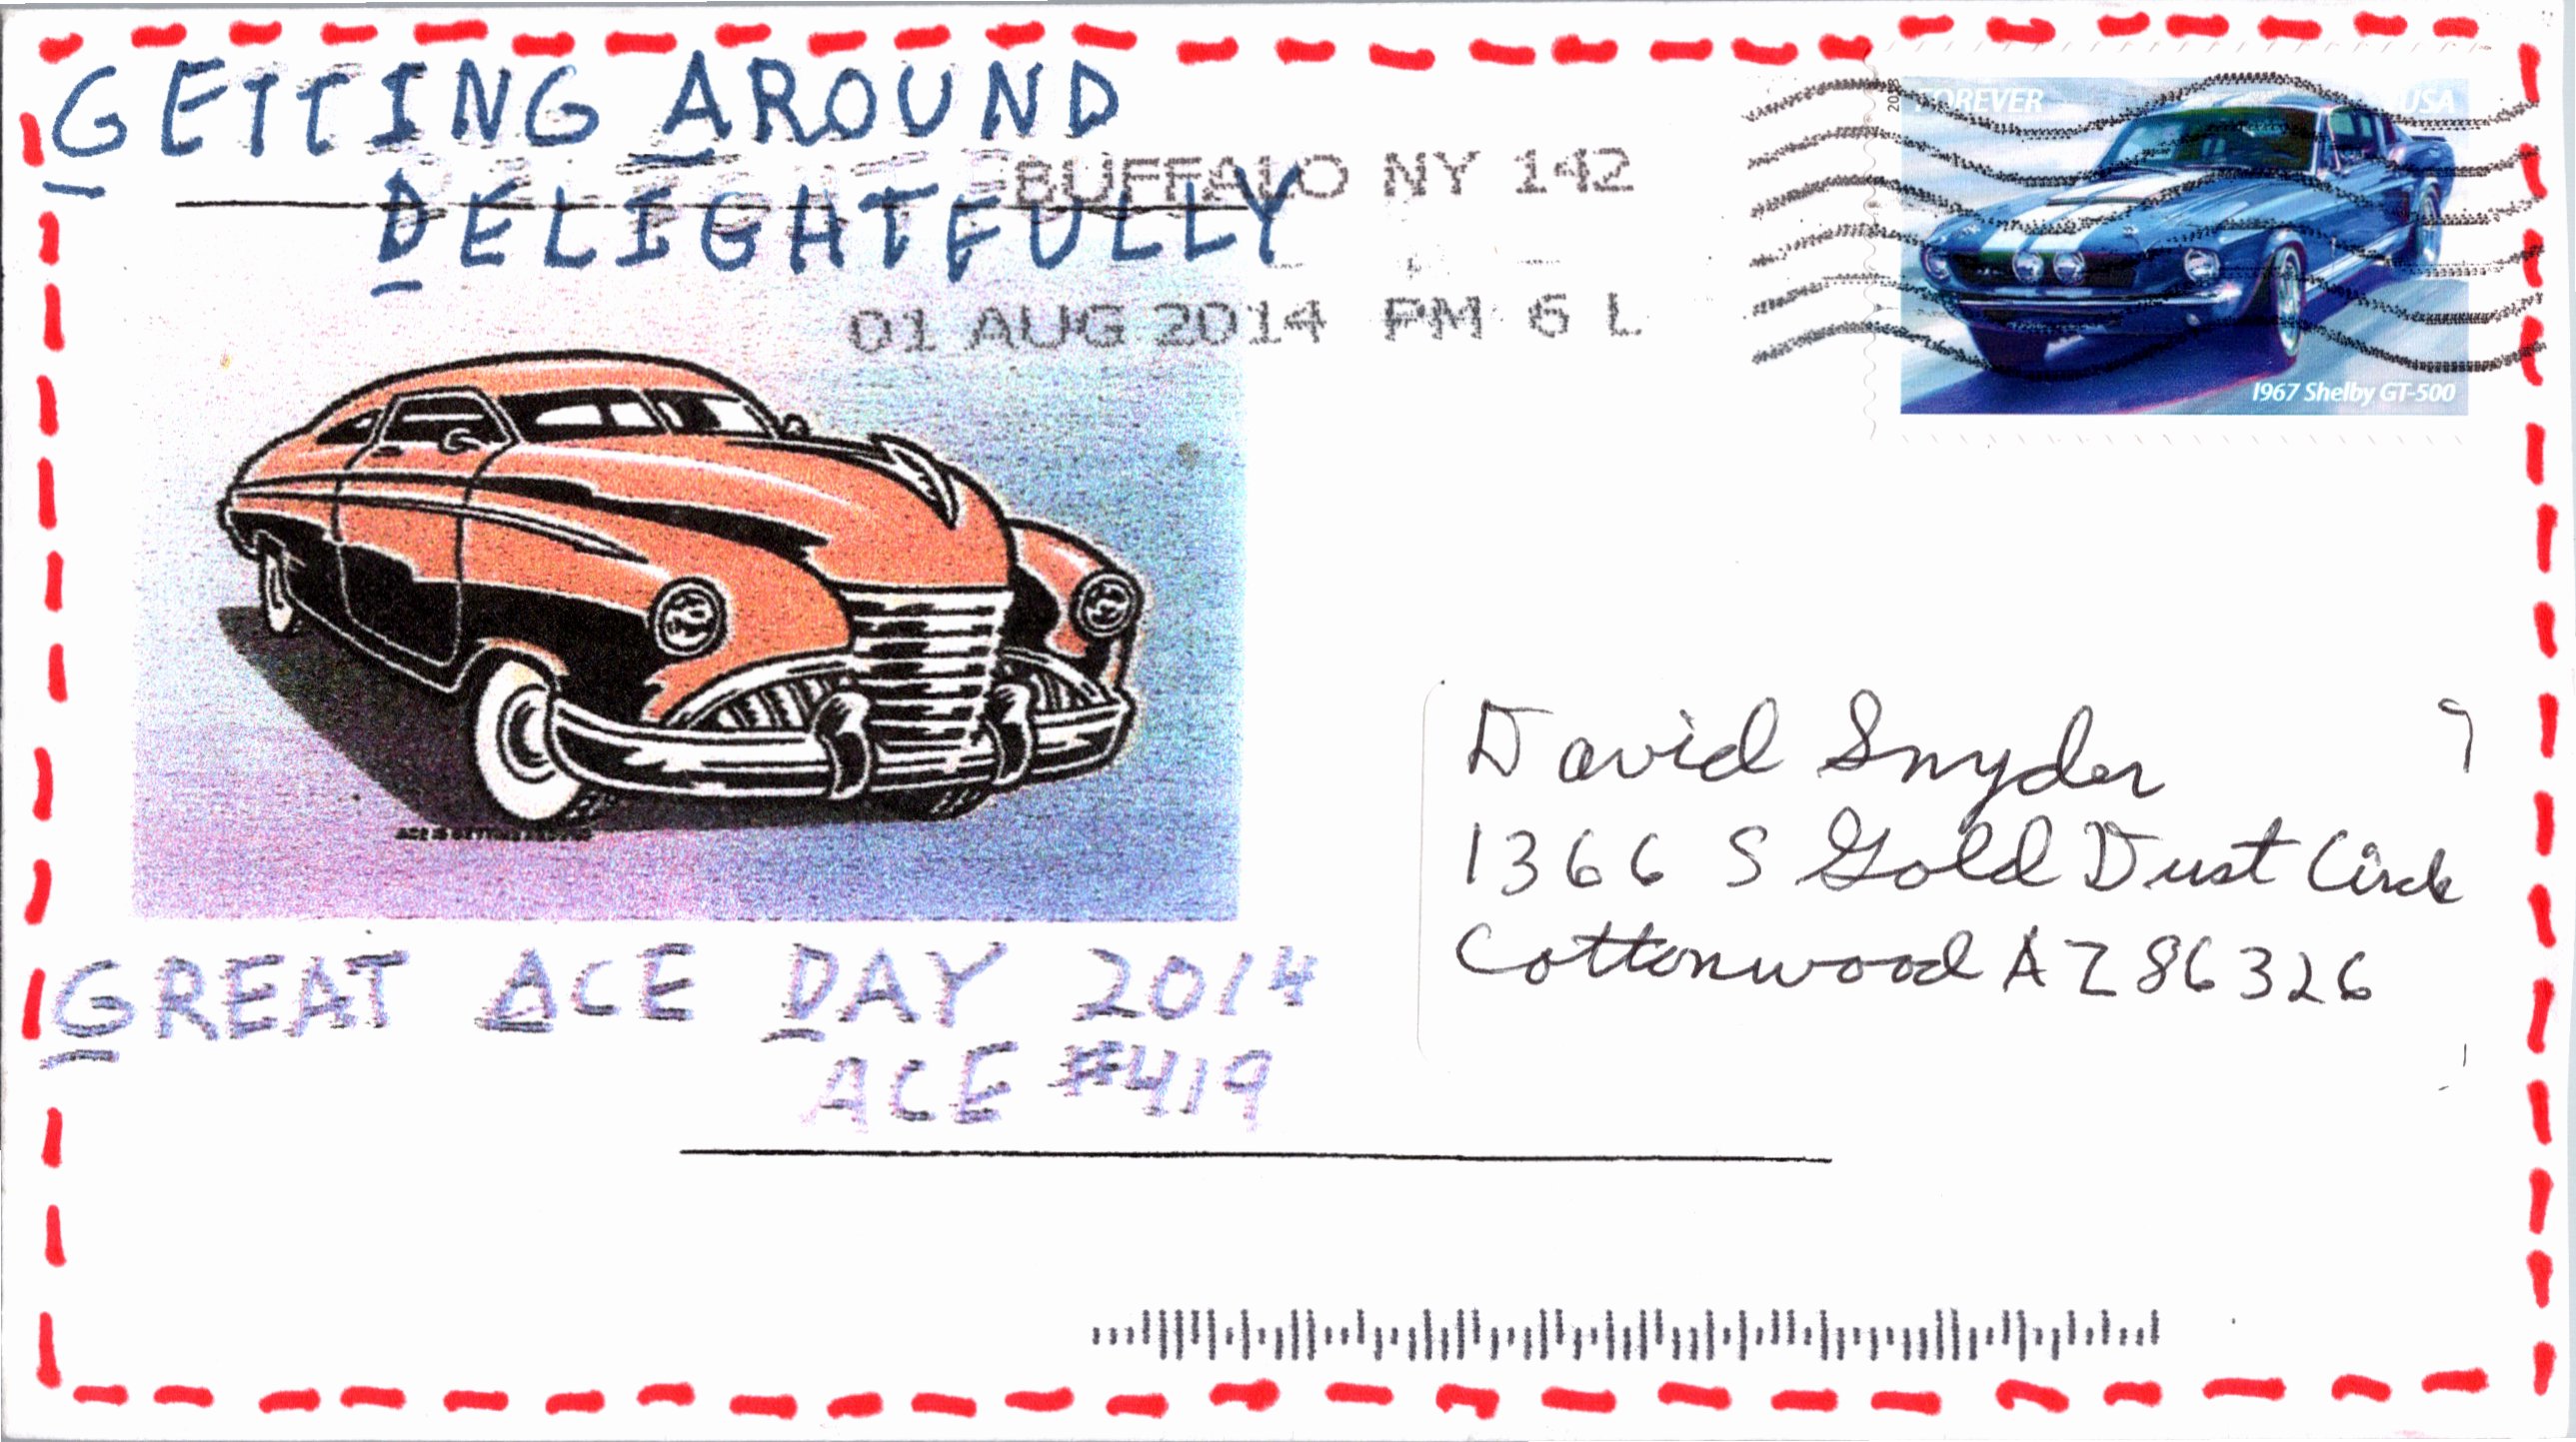 GETTING AROUND
DELIGHTFULLY
BUFFALO NY 142
01 AUG 2014 PM 6 L
FOREVER USA
2013
1967 Shelby GT-500
ACE IS GETTING AROUND
David Snyder
1366 S Gold Dust Circle
Cottonwood AZ 86326
GREAT ACE DAY 2014
ACE #419